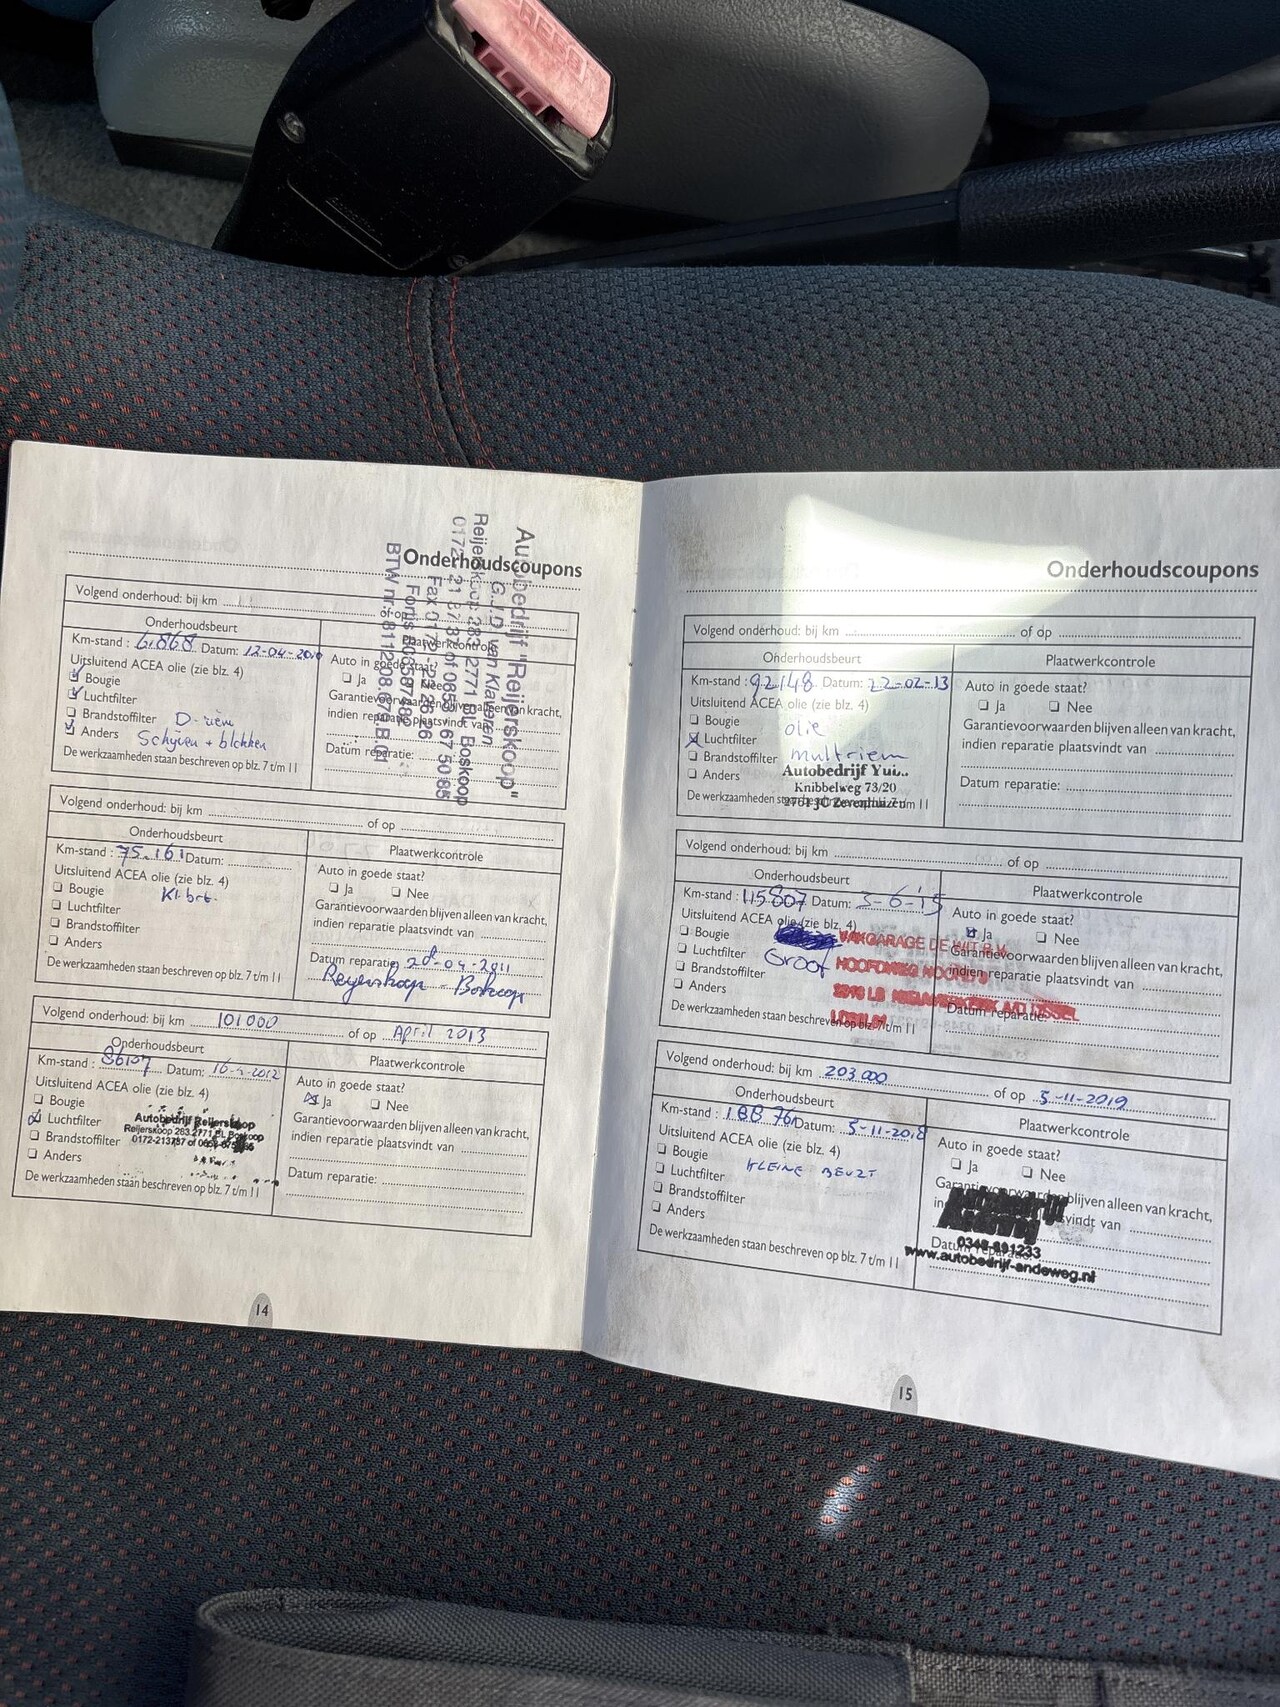 PRESS
Onderhoudscoupons
Autobedrijf "Reijerskoop"
G.J.D. van Klateren
Reijerskoop 283, 2771 BL Boskoop
BTW nr. 8112.08.679.B.01
Volgend onderhoud: bij km
of op
Onderhoudsbeurt
Plaatwerkcontrole
Km-stand : 61.868 Datum: 12-04-2010
Auto in goede staat?
Uitsluitend ACEA olie (zie blz. 4)
Ja Nee
Bougie
Garantievoorwaarden blijven alleen van kracht,
Luchtfilter
indien reparatie plaatsvindt van
Brandstoffilter D-riem
Anders Schijven + blokken
Datum reparatie:
De werkzaamheden staan beschreven op blz. 7 t/m 11
Volgend onderhoud: bij km of op
Onderhoudsbeurt
Plaatwerkcontrole
Km-stand : 75.161 Datum:
Auto in goede staat?
Uitsluitend ACEA olie (zie blz. 4)
Ja Nee
Bougie Kl. brt.
Garantievoorwaarden blijven alleen van kracht,
Luchtfilter
indien reparatie plaatsvindt van
Brandstoffilter
Anders
Datum reparatie 28-04-2011
De werkzaamheden staan beschreven op blz. 7 t/m 11
Reijerskoop - Boskoop
Volgend onderhoud: bij km 101000 of op April 2013
Onderhoudsbeurt
Plaatwerkcontrole
Km-stand : 86107 Datum: 16-4-2012
Auto in goede staat?
Uitsluitend ACEA olie (zie blz. 4)
Ja Nee
Bougie
Garantievoorwaarden blijven alleen van kracht,
Luchtfilter
indien reparatie plaatsvindt van
Autobedrijf Reijerskoop
Reijerskoop 283 2771 BL Boskoop
Brandstoffilter
0172-213787 of
Anders
Datum reparatie:
De werkzaamheden staan beschreven op blz. 7 t/m 11
14
Onderhoudscoupons
Volgend onderhoud: bij km of op
Onderhoudsbeurt
Plaatwerkcontrole
Km-stand : 92148 Datum: 22-02-13
Auto in goede staat?
Uitsluitend ACEA olie (zie blz. 4)
Ja Nee
Bougie olie
Garantievoorwaarden blijven alleen van kracht,
Luchtfilter
indien reparatie plaatsvindt van
Brandstoffilter multriem
Anders
Autobedrijf
Knibbelweg 73/20
2761 JC Zevenhuizen
Datum reparatie:
De werkzaamheden staan beschreven op blz. 7 t/m 11
Volgend onderhoud: bij km of op
Onderhoudsbeurt
Plaatwerkcontrole
Km-stand : 115807 Datum: 3-6-15
Auto in goede staat?
Uitsluitend ACEA olie (zie blz. 4)
Ja Nee
Bougie
VAKGARAGE DE WIT B.V.
Garantievoorwaarden blijven alleen van kracht,
Luchtfilter Groot
HOOFDWEG NOORD
indien reparatie plaatsvindt van
Brandstoffilter
NIEUWERKERK A/D IJSSEL
Anders
Datum reparatie:
De werkzaamheden staan beschreven op blz. 7 t/m 11
Volgend onderhoud: bij km 203.000 of op 5-11-2019
Onderhoudsbeurt
Plaatwerkcontrole
Km-stand : 188 76 Datum: 5-11-2018
Auto in goede staat?
Uitsluitend ACEA olie (zie blz. 4)
Ja Nee
Bougie KLEINE BEURT
Garantievoorwaarden blijven alleen van kracht,
Luchtfilter
Brandstoffilter
Anders
Autobedrijf
Andeweg
0348-691233
www.autobedrijf-andeweg.nl
De werkzaamheden staan beschreven op blz. 7 t/m 11
15